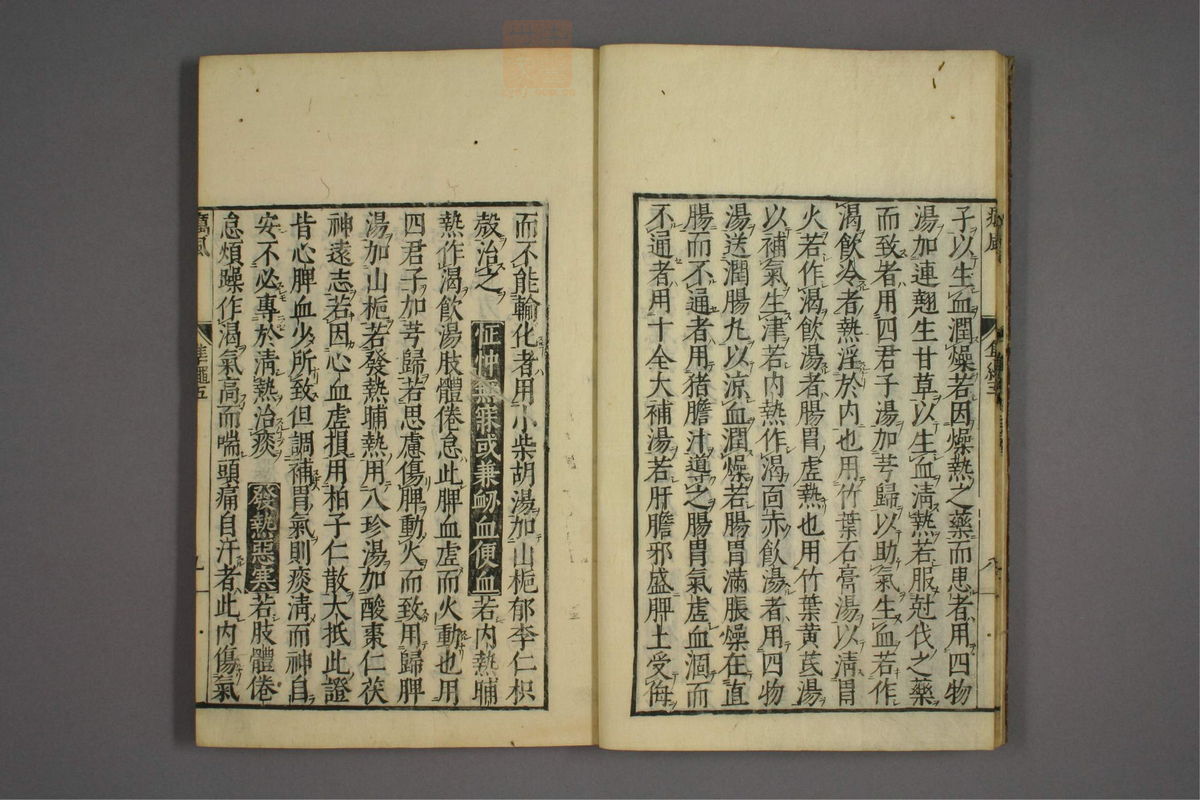 子以生血潤燥若因燥熱之藥而患者用四物
湯加連翹生甘草以生血淸熱若服尅伐之藥
而致者用四君子湯加芎歸以助氣生血若作
渴飲冷者熱淫於內也用竹葉石膏湯以淸胃
火若作渴飲湯者腸胃虛熱也用竹葉黃芪湯
以補氣生津若內熱作渴面赤飲湯者用四物
湯送潤腸丸以涼血潤燥若腸胃滿脹燥在直
腸而不通者用猪膽汁導之腸胃氣虛血涸而
不通者用十全大補湯若肝膽邪盛脾土受侮
而不能輸化者用小柴胡湯加山梔郁李仁枳
殼治之怔忡無寐或兼衂血便血若內熱晡
熱作渴飲湯肢體倦怠此脾血虛而火動也用
四君子加芎歸若思慮傷脾動火而致用歸脾
湯加山梔若發熱晡熱用八珍湯加酸棗仁茯
神遠志若因心血虛損用柏子仁散大抵此證
皆心脾血少所致但調補胃氣則痰淸而神自
安不必專於淸熱治痰發熱惡寒若肢體倦
怠煩躁作渴氣高而喘頭痛自汗者此內傷氣
癘風